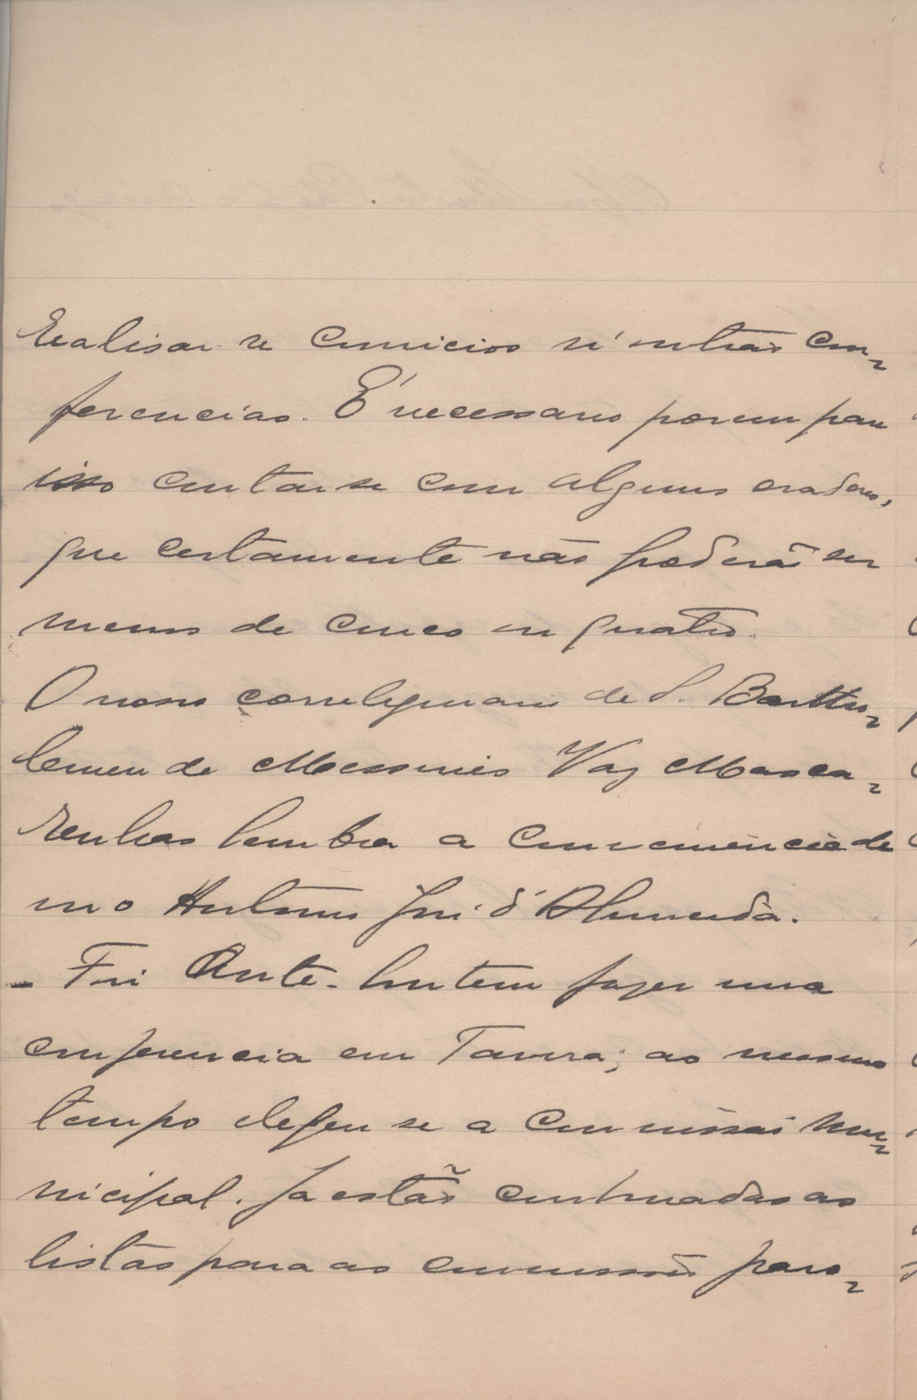 Realisar se comicios n'outras con-
ferencias. É necessario porem para
isso contar se com alguns oradores,
que certamente não poderão ser
menos de cinco ou quatro.
O nosso correligionario de S. Bartho-
lomeu de Messines Vaz Masca-
renhas lembra a conveniencia de
Antonio José d'Almeida.
- Fui Ante-hontem fazer uma
conferencia em Tavira; ao mesmo
tempo elegeu se a Commissão Mu-
nicipal. Ja estão combinadas as
listas para as commissões paro-